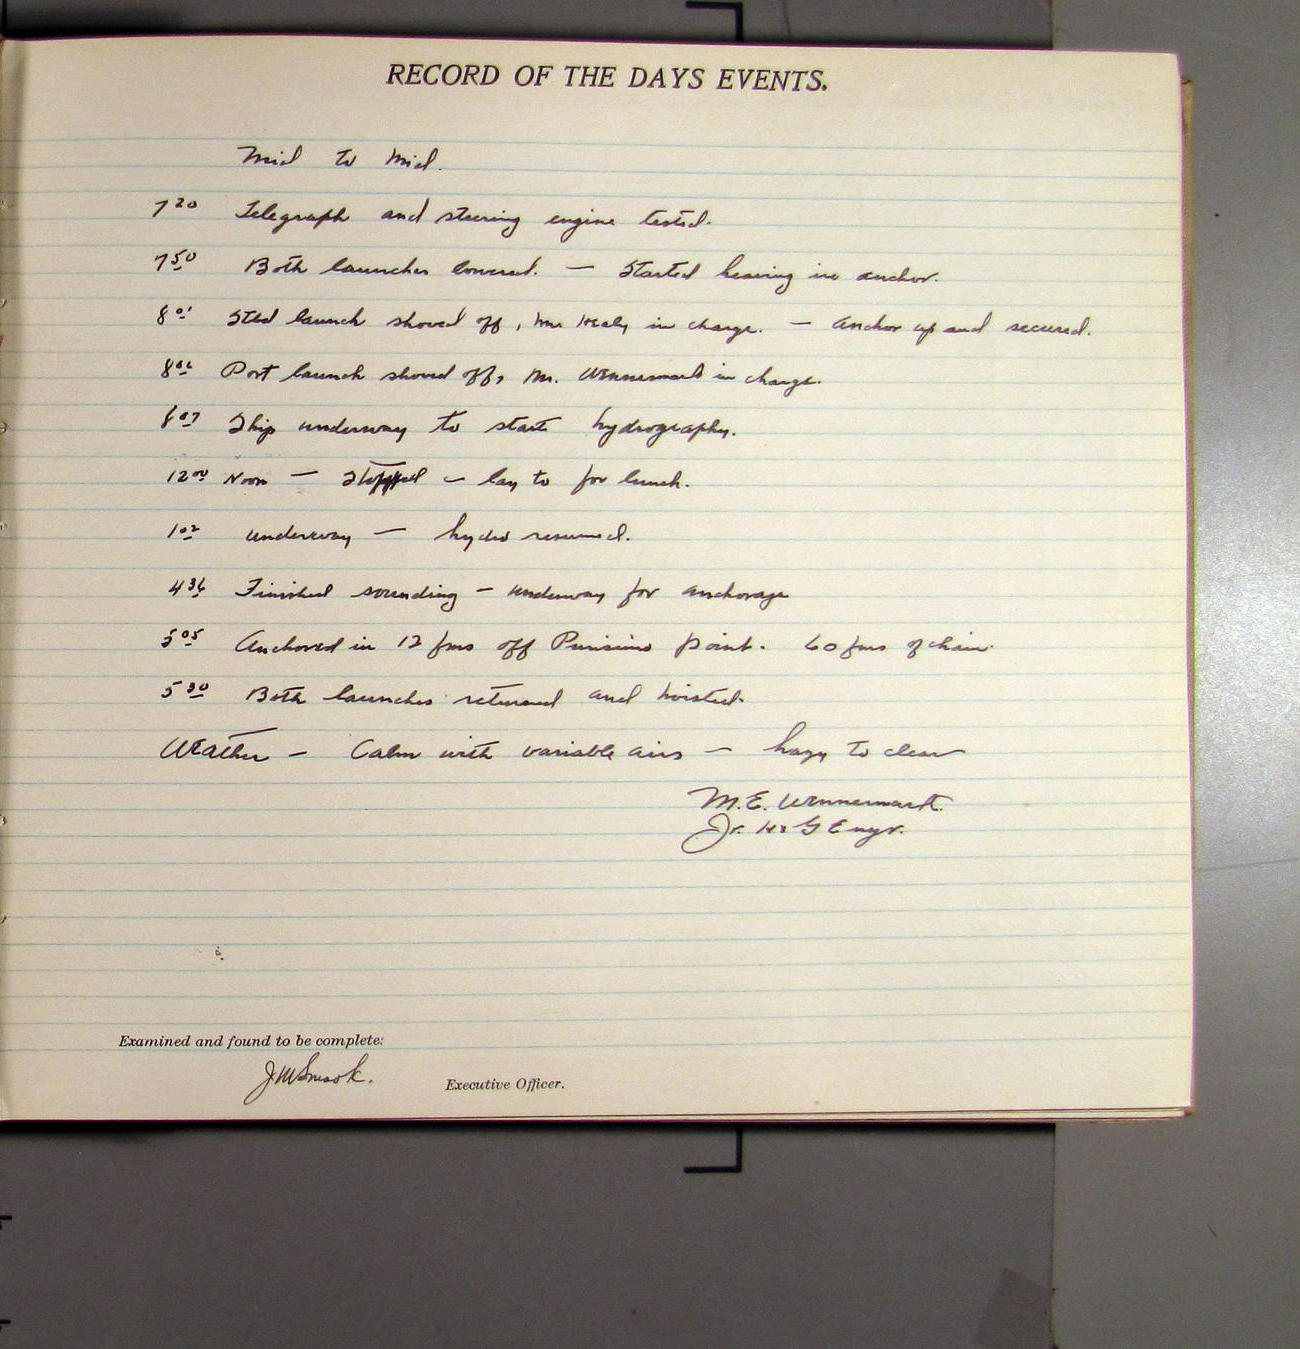 RECORD OF THE DAYS EVENTS.
Mid to Mid.
7 20 Telegraph and steering engine tested.
7 50 Both launches lowered. — Started heaving in anchor.
8 01 Stbd launch shoved off, Mr. Healy in charge. — Anchor up and secured.
8 02 Port launch shoved off, Mr. Wennermark in charge.
8 07 Ship underway to start hydrography.
12 00 Noon — Stopped — lay to for lunch.
1 02 Underway — hydro resumed.
4 36 Finished sounding — underway for anchorage
5 05 Anchored in 12 fms off Purisima point. 60 fms of chain.
5 30 Both launches returned and hoisted.
Weather — Calm with variable airs — hazy to clear
M.E. Wennermark.
Jr. H & G Engr.
Examined and found to be complete:
Executive Officer.